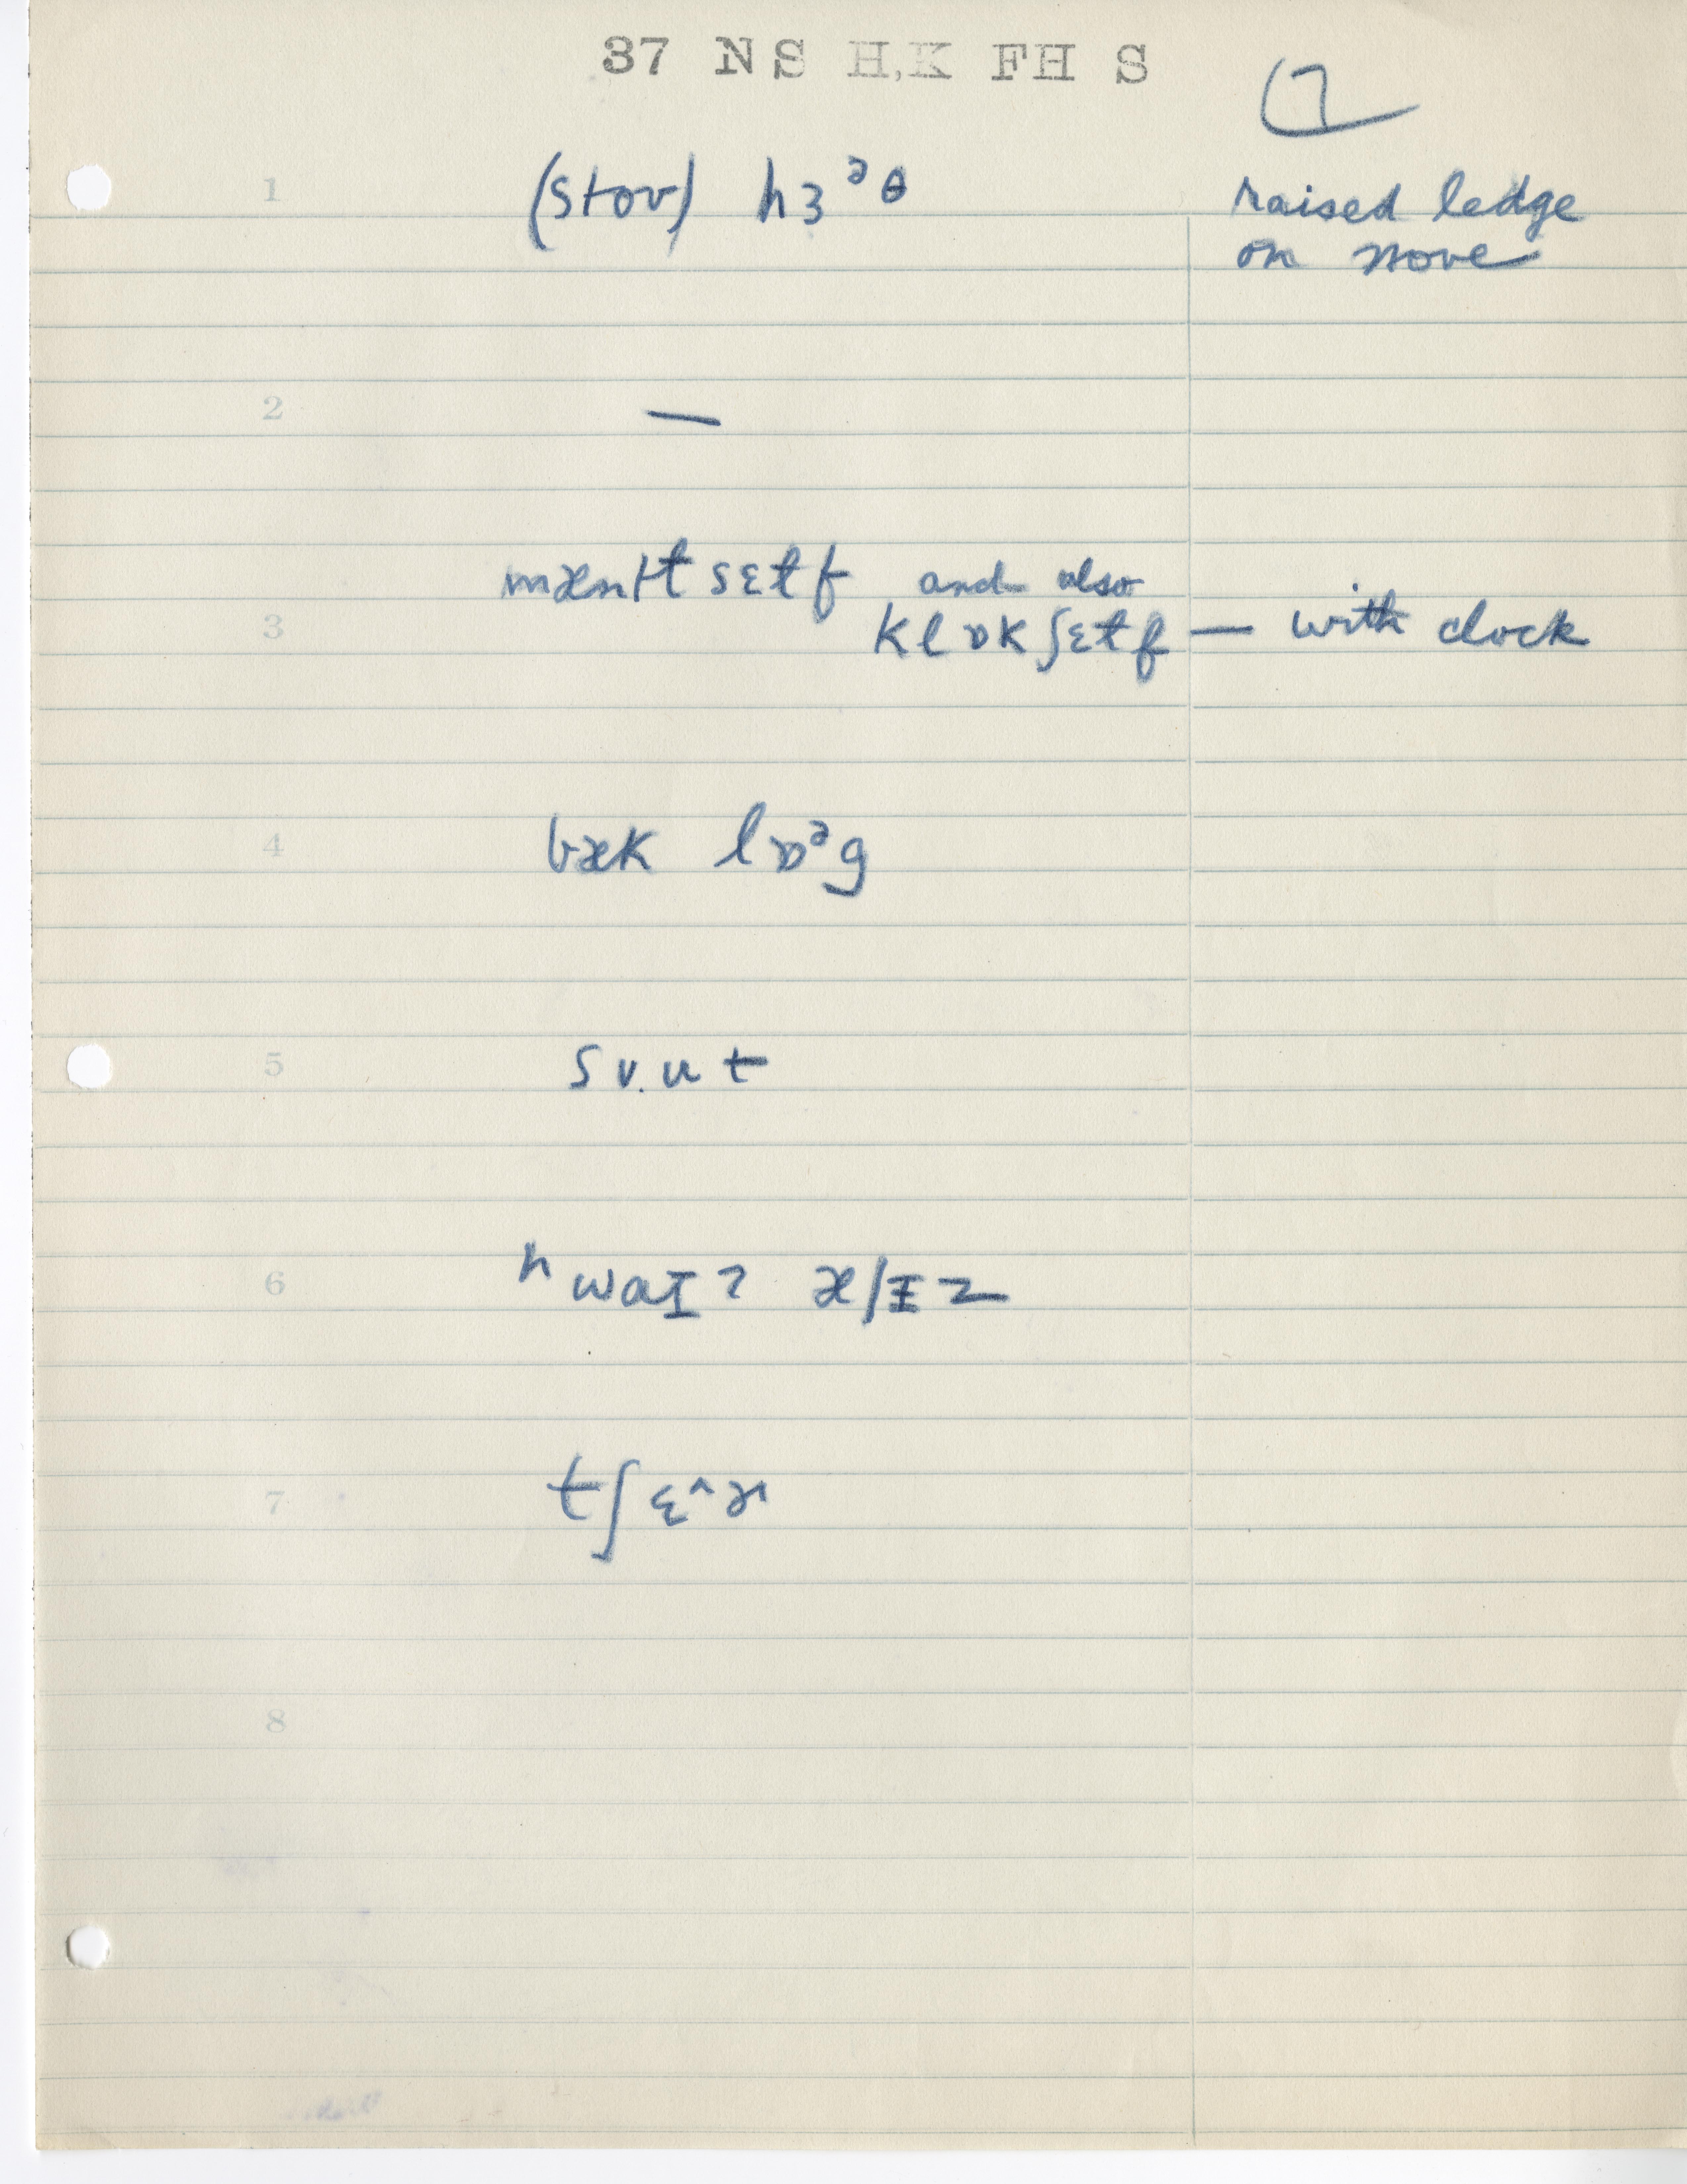 37 NS H,K FH S
7
1 (stov) hɜᵊθ raised ledge
on stove
2 —
mæntɫ ʃɛɫf and also
3 klɒkʃɛɫf — with clock
4 bæk lɒᵊg
5 sʊ.ut
6 ʰwaɪʔ æʃɪz
7 tʃɛ^ɚ
8